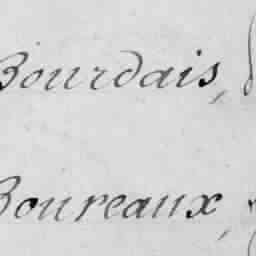 Bourdais,
Boureaux,